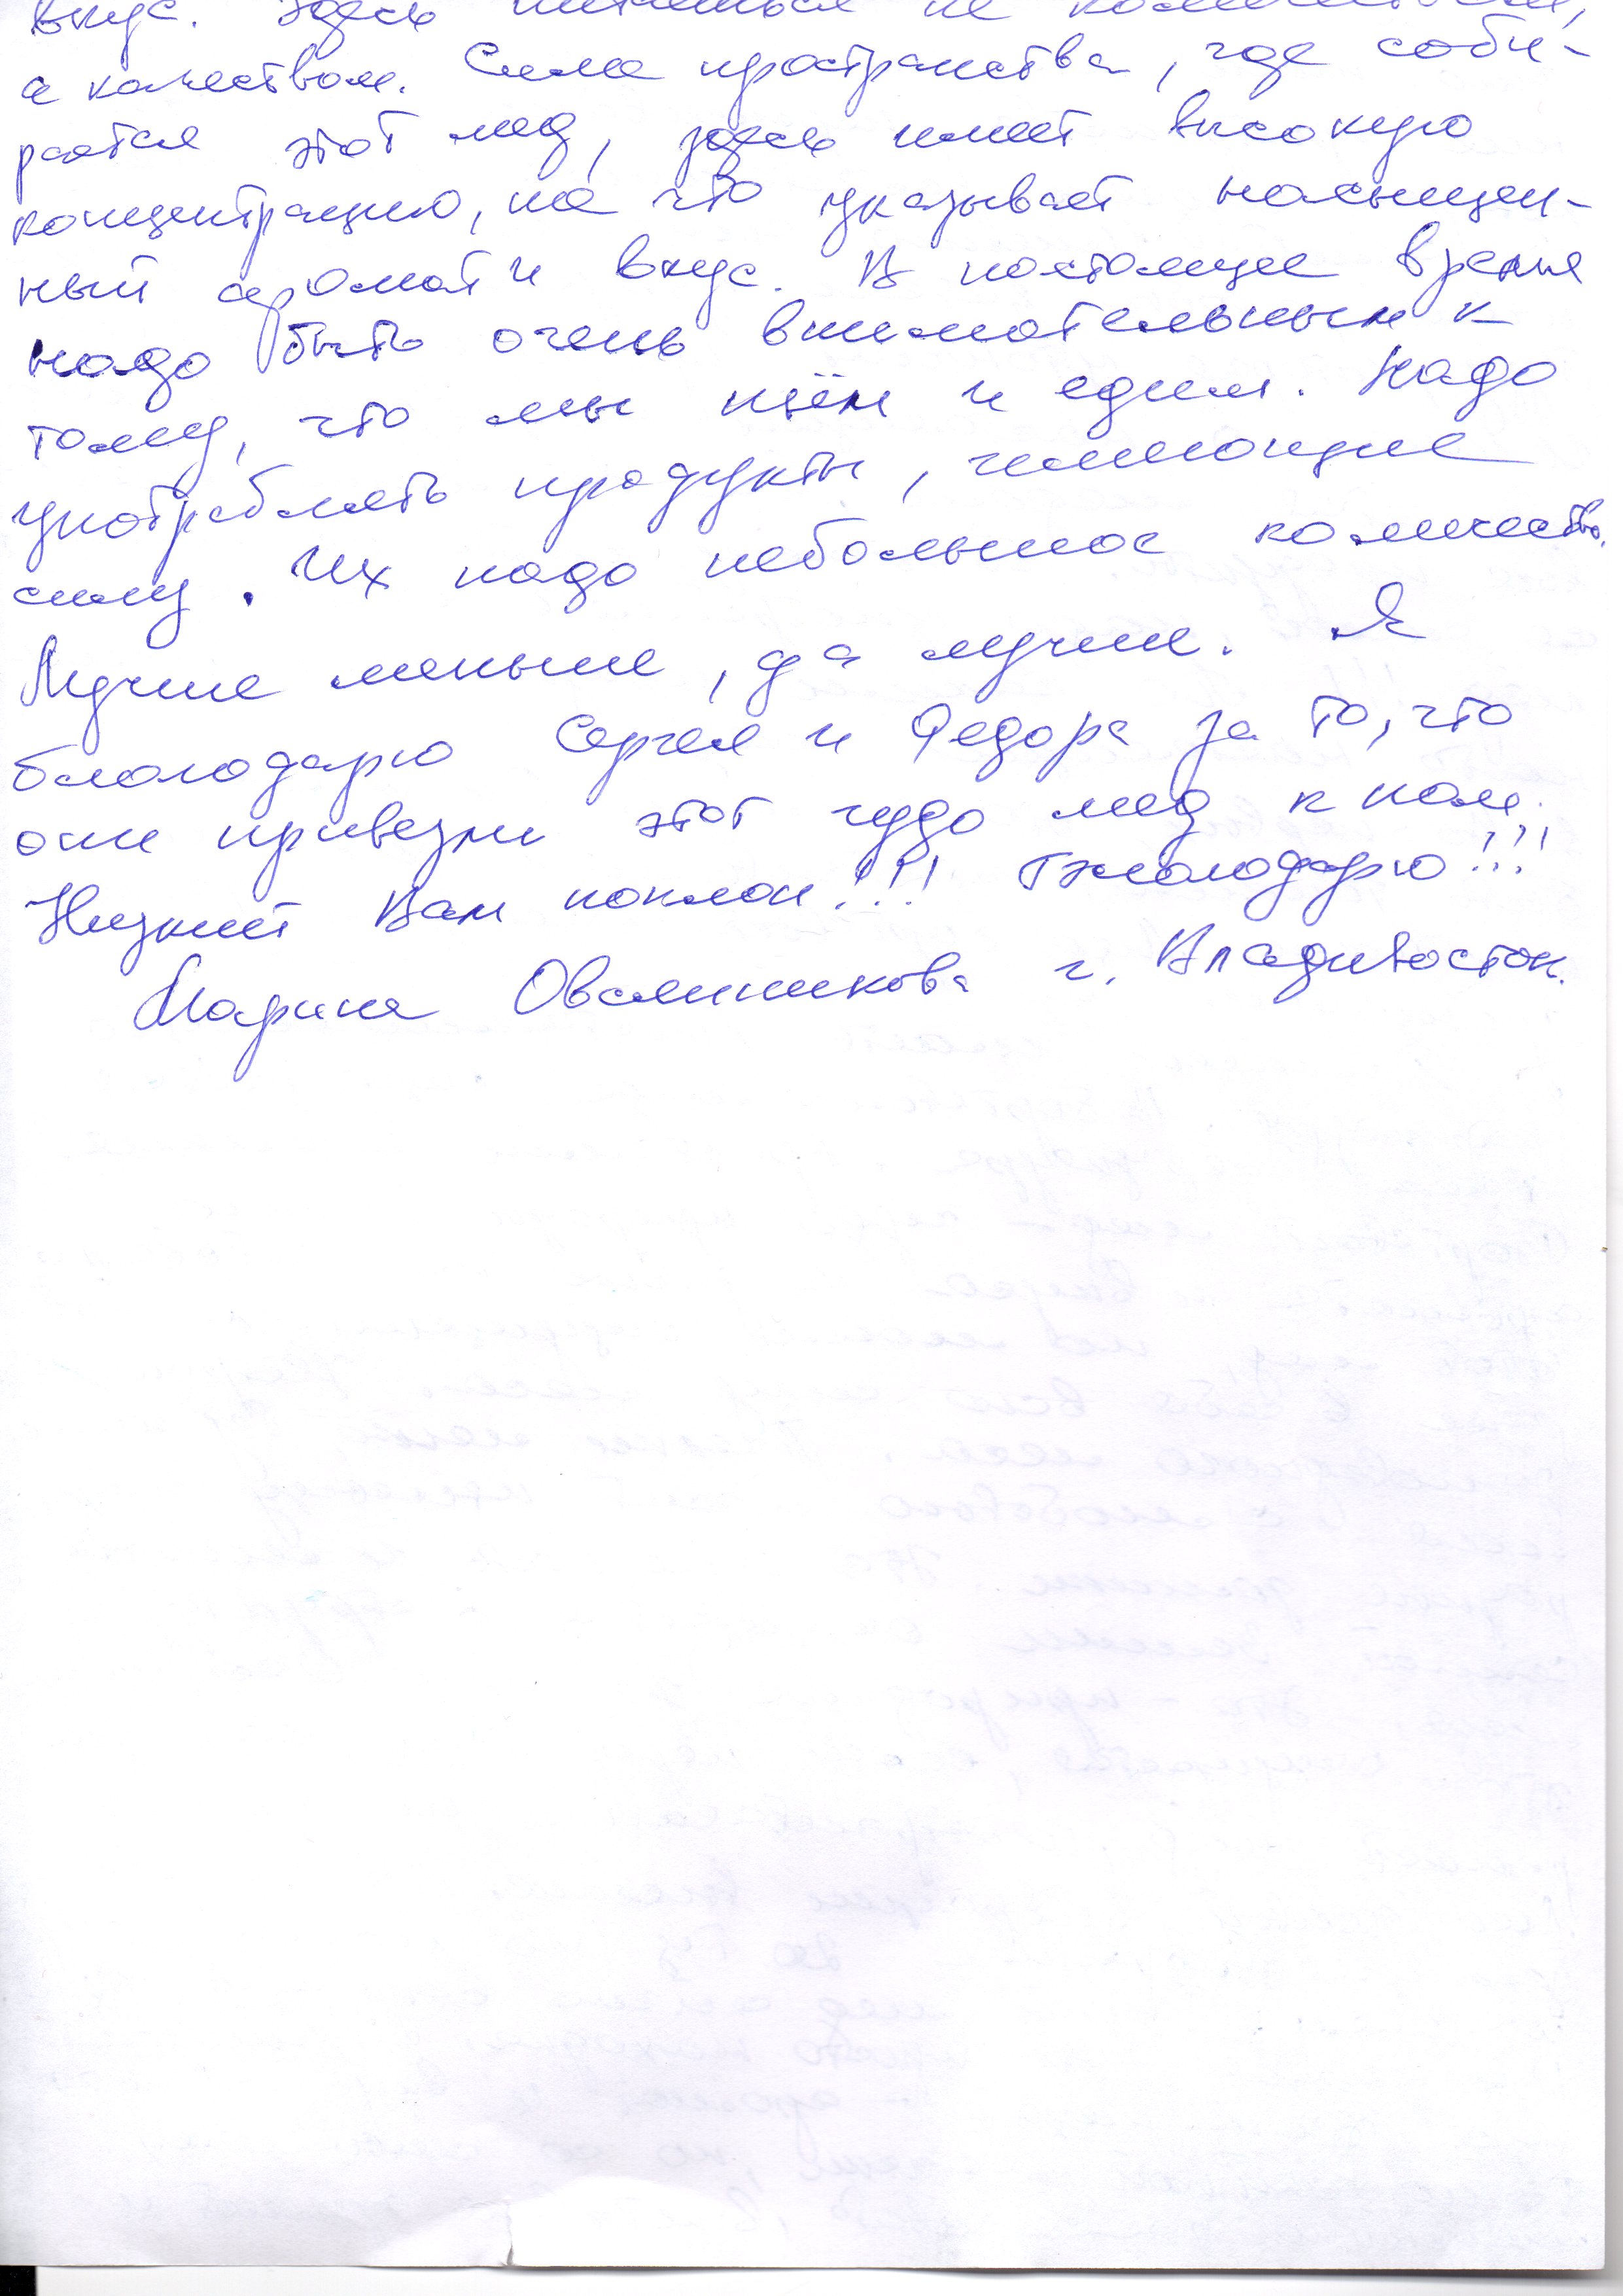 вкус. Здесь питаешься не количеством,
а качеством. Сила пространства, где соби-
рается этот мед, здесь имеет высокую
концентрацию, на что указывает насыщен-
ный аромат и вкус. В настоящее время
надо быть очень внимательным к
тому, что мы пьём и едим. Надо
употреблять продукты, имеющие
силу. Их надо небольшое количество.
Лучше меньше, да лучше. Я
благодарю Сергея и Федора за то, что
они привезли этот чудо мед к нам.
Низкий Вам поклон!!! Благодарю!!!
Марина Овсянникова г. Владивосток.